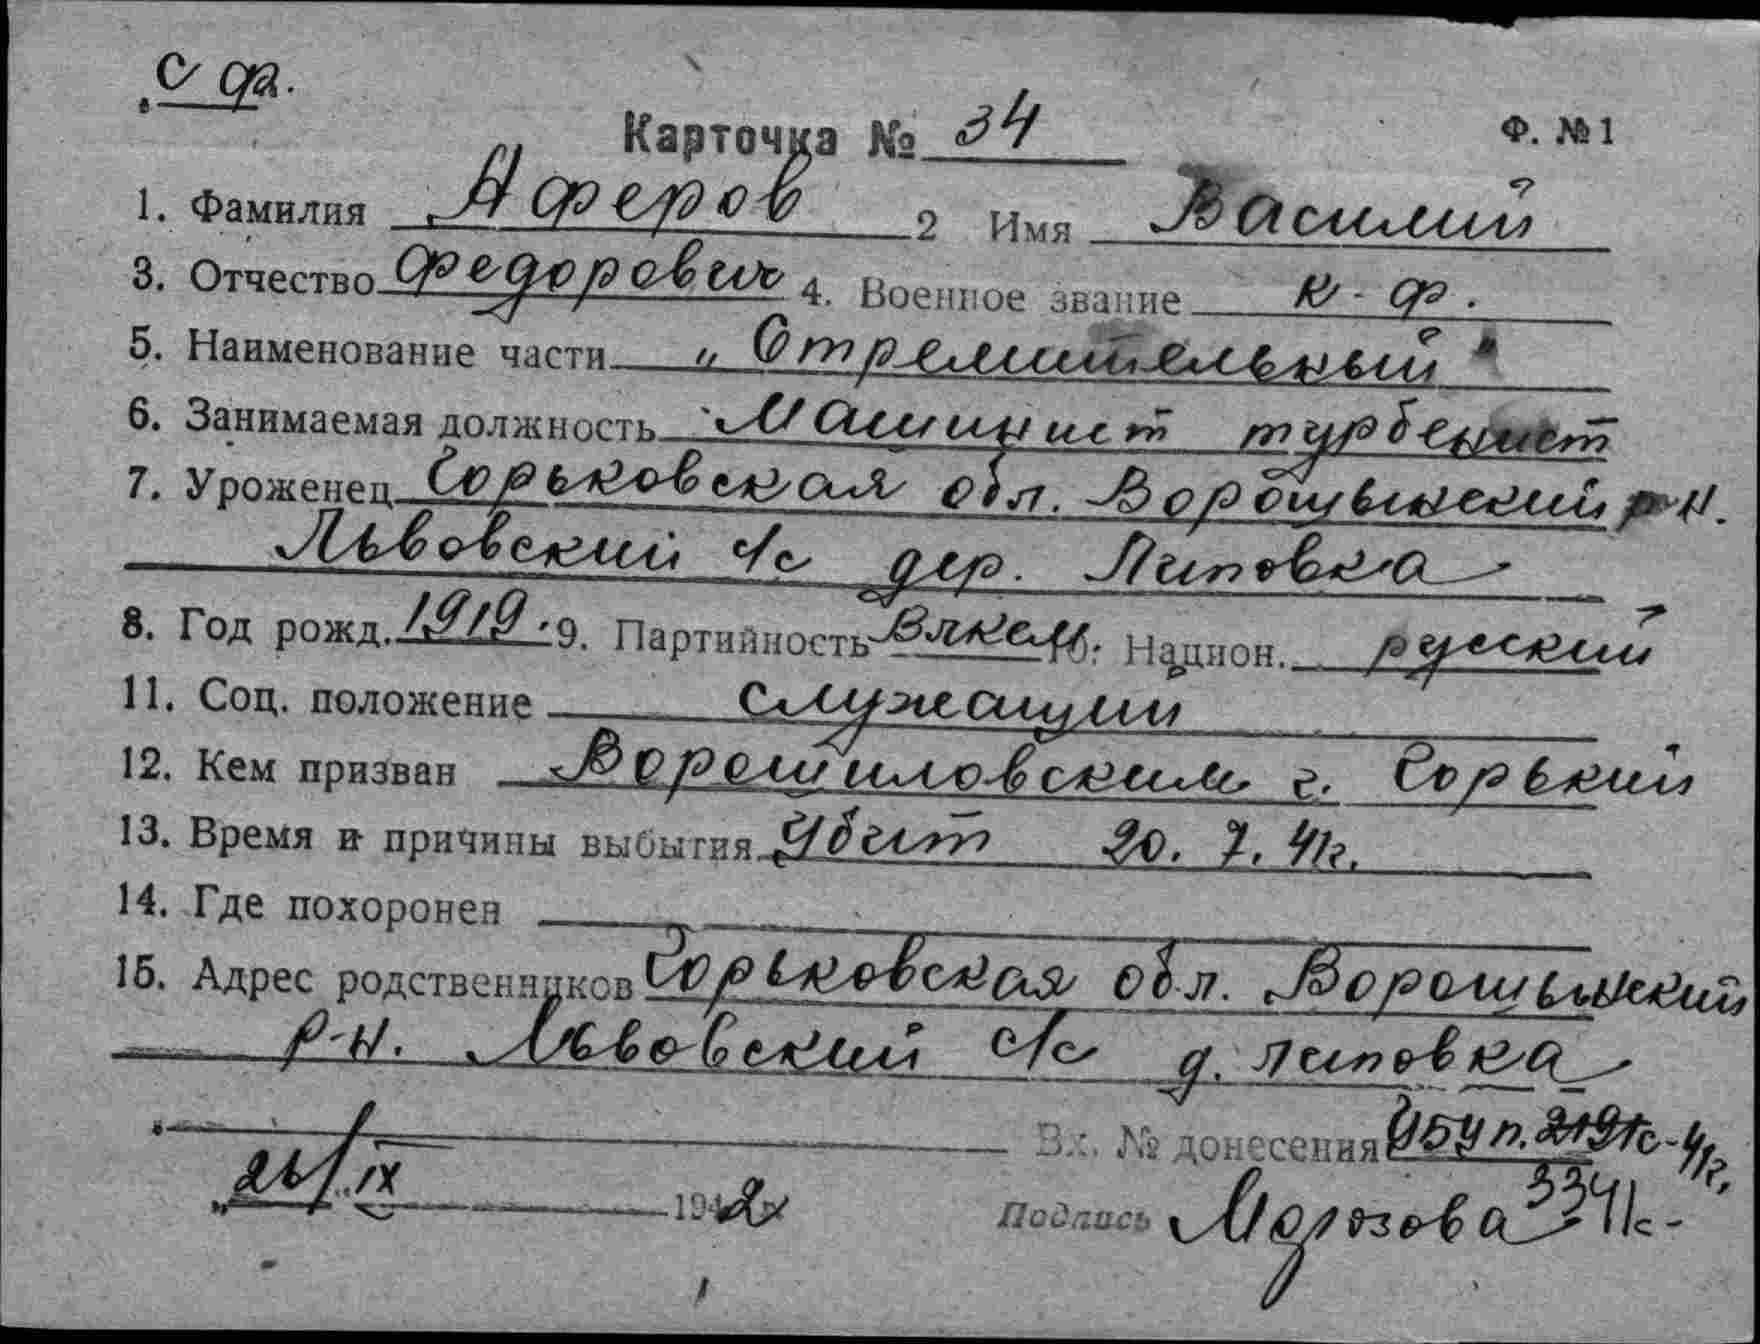 с ф.
Карточка № 34 Ф. №1
1. Фамилия Аферов 2 Имя Василий
3. Отчество Федорович 4. Военное звание к-ф.
5. Наименование части „Стремительный"
6. Занимаемая должность Машинист турбенист
7. Уроженец Горьковская обл. Ворошынский р-н.
Львовский с/с дер. Липовка
8. Год рожд. 1919. 9. Партийность Влксм 10. Национ. русский
11. Соц. положение служащий
12. Кем призван Ворошиловским г. Горький
13. Время и причины выбытия Убит 20. 7. 41г.
14. Где похоронен
15. Адрес родственников Горьковская обл. Ворошынский
р-н. Львовский с/с д. липовка
Вх. № донесения УБУ п. 2191с-41г.
26/IX 1942 Подпись Морозова 3341с-